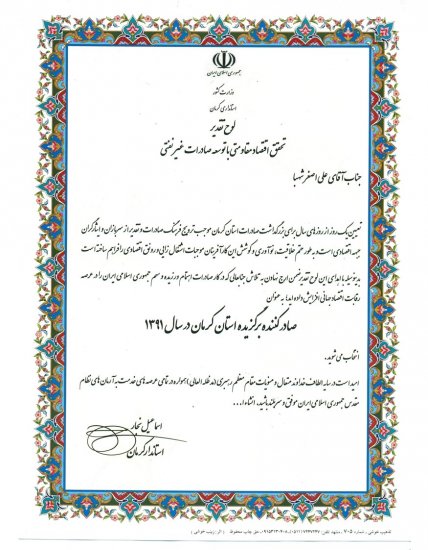 جمهوری اسلامی ایران
وزارت کشور
استانداری کرمان
لوح تقدیر
تحقق اقتصاد مقاومتی با توسعه صادرات غیرنفتی
جناب آقای علی اصغر شهبا
تعیین یک روز از روزهای سال برای بزرگداشت صادرات استان کرمان موجب ترویج فرهنگ صادرات و تقدیر از سربازان و ایثارگران
جبهه اقتصادی است و به طور حتم خلاقیت، نوآوری و کوشش این کارآفرینان موجبات اشتغال زائی و رونق اقتصادی را فراهم ساخته است
بدینوسیله با اهدای این لوح تقدیر ضمن ارج نهادن به تلاش جنابعالی که در کار صادرات اهتمام ورزیده و سهم جمهوری اسلامی ایران را در عرصه
رقابت اقتصاد جهانی افزایش داده اید، با به عنوان
صادرکننده برگزیده استان کرمان در سال ۱۳۹۱
انتخاب می شوید.
امید است در سایه الطاف خداوند متعال و منویات مقام معظم رهبری (مدظله العالی) همواره در تمامی عرصه های خدمت به آرمان های نظام
مقدس جمهوری اسلامی ایران موفق و سربلند باشید. انشاءا...
اسماعیل نجار
استاندار کرمان
تذهیب خوشی، شماره ۷۰۵، مشهد تلفن:
حق چاپ محفوظ